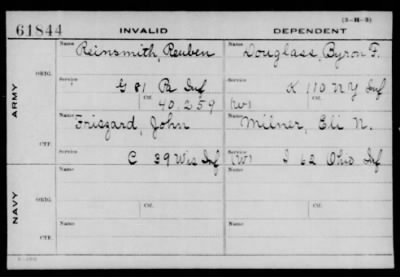 (3-H-3)
61844 INVALID DEPENDENT
Name Reinsmith, Reuben Name Douglass, Byron F.
ORIG.
Service G 81 Pa Inf Service K 110 N Y Inf
Ctf. 40,259 (W) Ctf.
ARMY
Name Friszard, John Name Milner, Eli N.
CTF.
Service C 39 Wis Inf Service (W) I 62 Ohio Inf
Name Ctf. Name Ctf.
ORIG.
NAVY
Name Name
CTF.